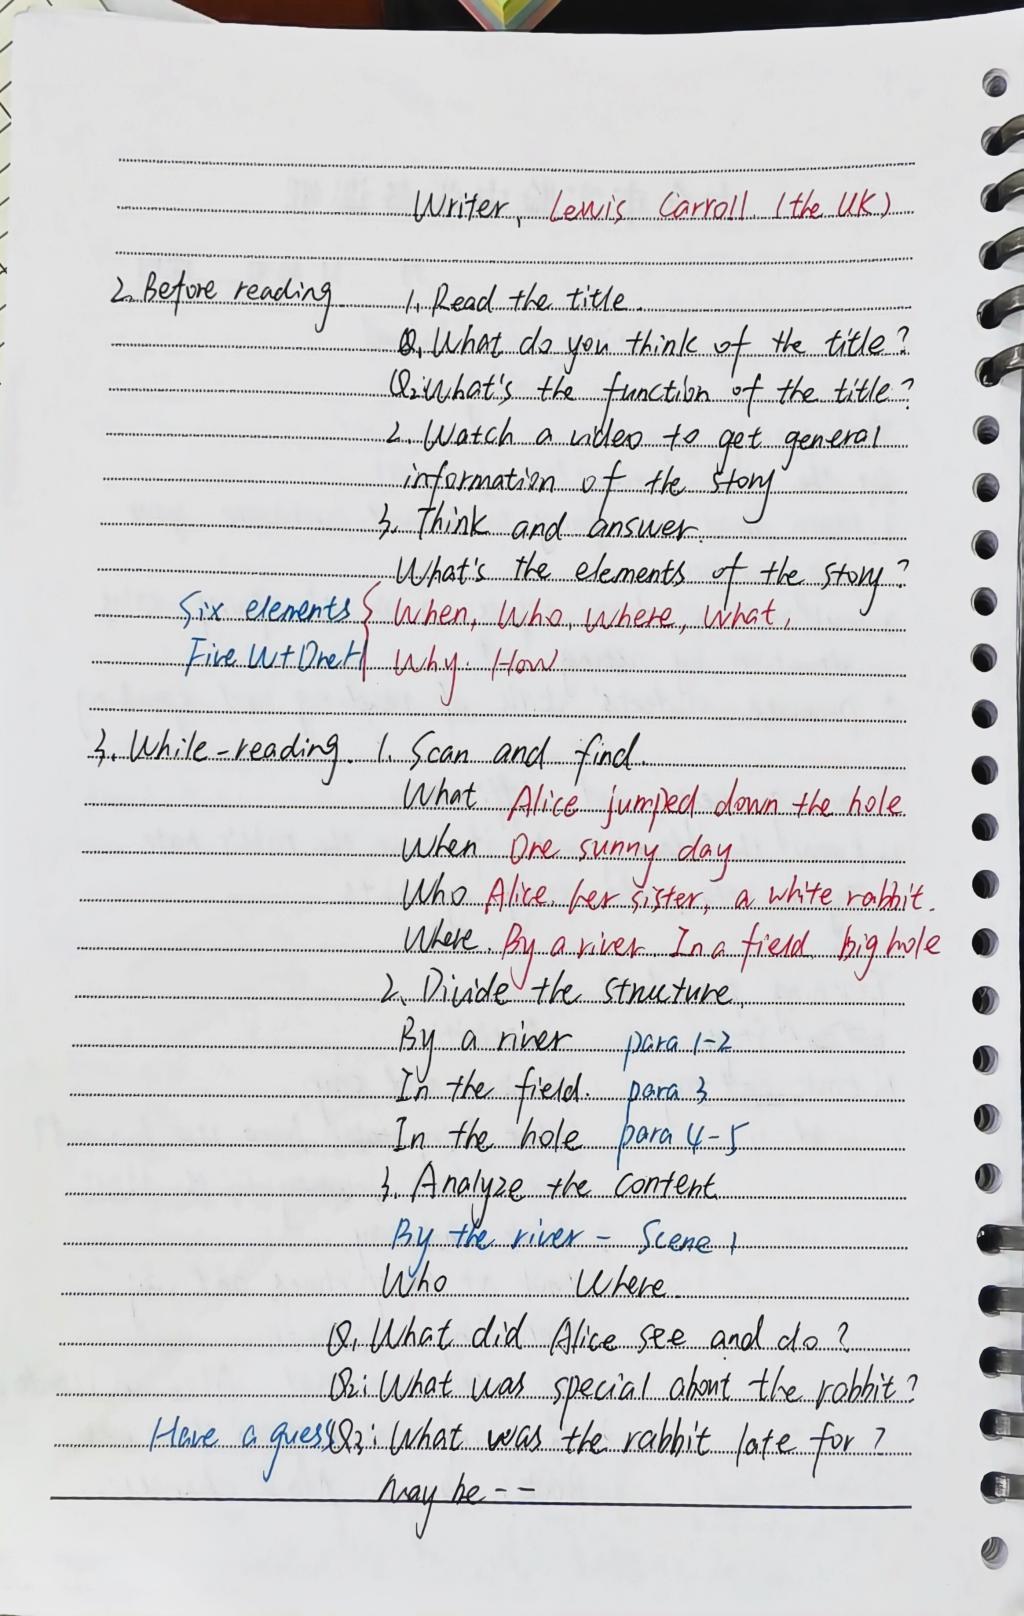 Writer, Lewis Carroll (the UK)
2. Before reading 1. Read the title.
Q1 What do you think of the title?
Q2: What's the function of the title?
2. Watch a video to get general
information of the story
3. Think and answer.
What's the elements of the story?
Six elements { When, Who, Where, What,
Five W+One H Why. How
3. While-reading. 1. Scan and find.
What Alice jumped down the hole
When One sunny day
Who Alice, her sister, a white rabbit.
Where. By a river. In a field big hole
2. Divide the structure.
By a river para 1-2
In the field. para 3
In the hole para 4-5
3. Analyze the content
By the river - Scene 1
Who Where
Q1 What did Alice see and do?
Q2: What was special about the rabbit?
Have a guess Q3: What was the rabbit late for?
may be --